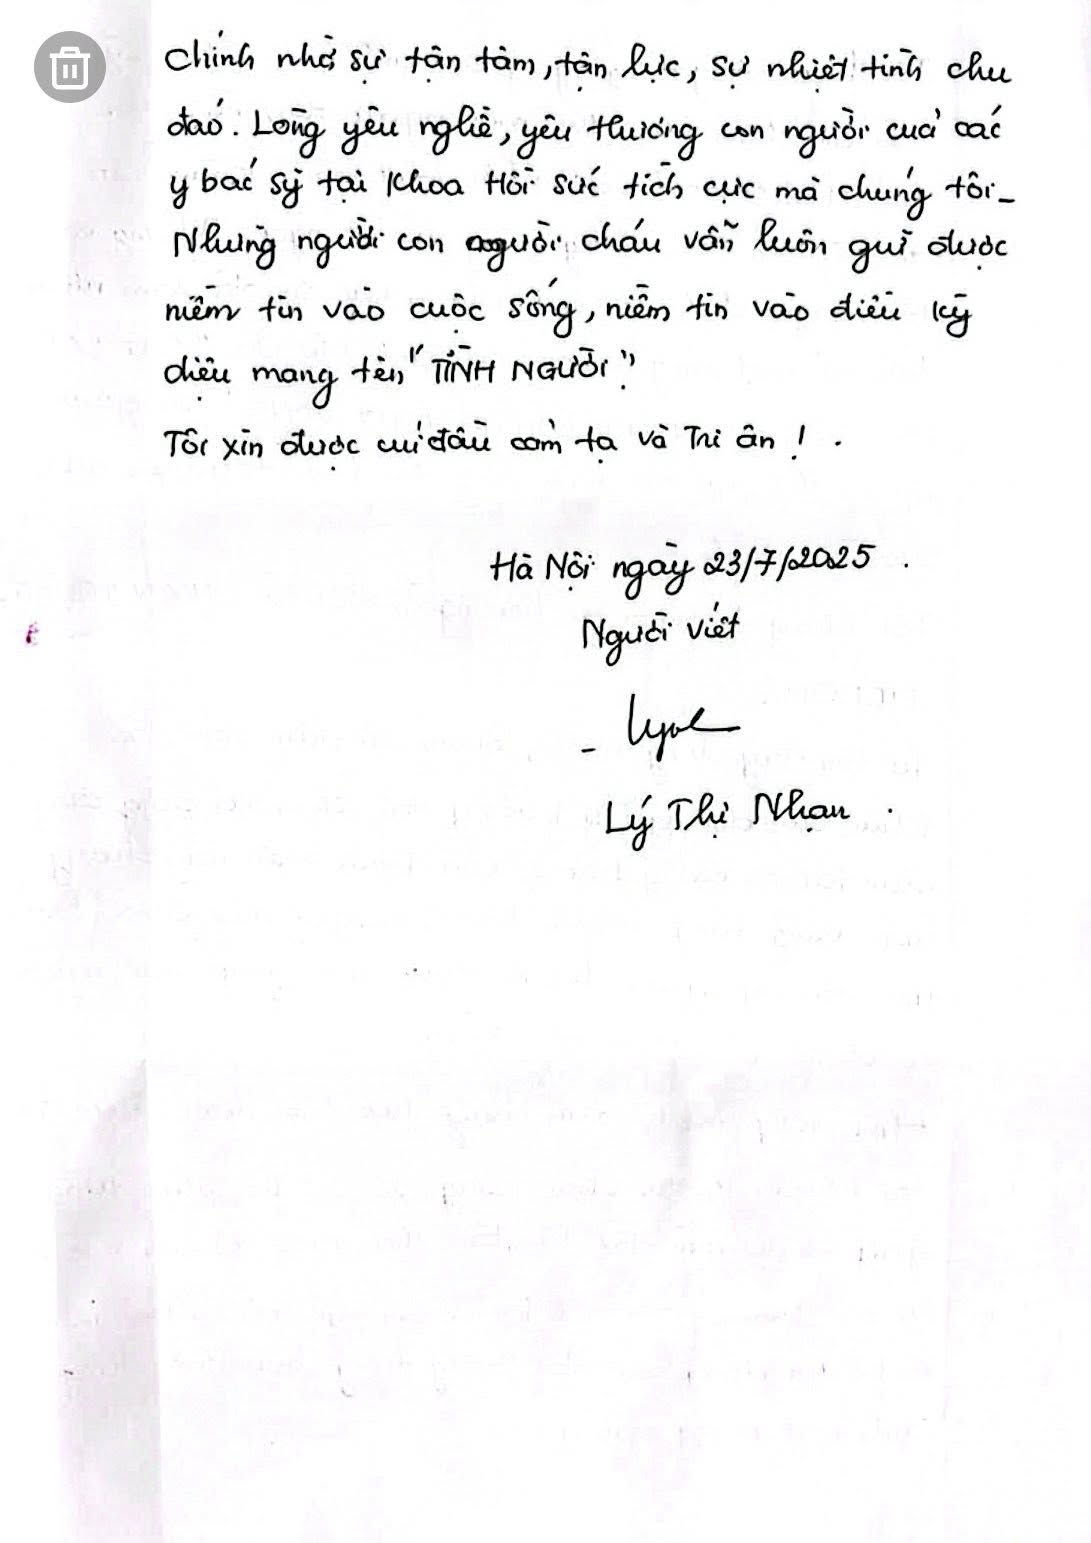 Chính nhờ sự tận tâm, tận lực, sự nhiệt tình chu
đáo. Lòng yêu nghề, yêu thương con người của các
y bác sỹ tại Khoa Hồi sức tích cực mà chúng tôi -
Những người con người cháu vẫn luôn giữ được
niềm tin vào cuộc sống, niềm tin vào điều kỳ
diệu mang tên "TÌNH NGƯỜI"
Tôi xin được cúi đầu cảm tạ và Tri ân ! .
Hà Nội ngày 23/7/2025 .
Người viết
Lý Thị Nhạn .